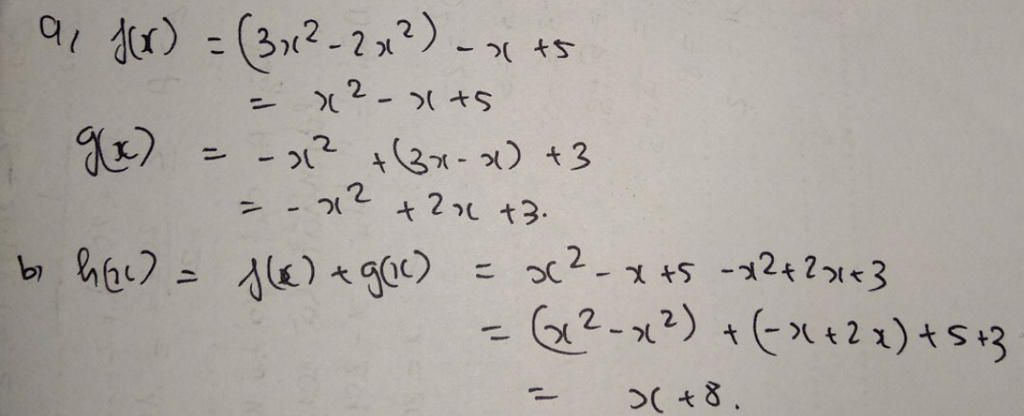 a, f(x) = (3x² - 2x²) - x + 5
= x² - x + 5
g(x) = - x² + (3x - x) + 3
= - x² + 2x + 3.
b, h(x) = f(x) + g(x) = x² - x + 5 - x² + 2x + 3
= (x² - x²) + (-x + 2x) + 5 + 3
= x + 8.